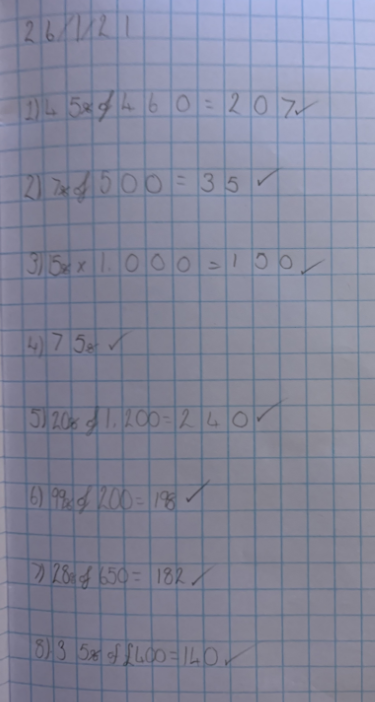 26/1/21
1) 45% of 460 = 207 ✓
2) 7% of 500 = 35 ✓
3) 15% x 1.000 = 150 ✓
4) 75% ✓
5) 20% of 1.200 = 240 ✓
6) 99% of 200 = 198 ✓
7) 28% of 650 = 182 ✓
8) 35% of £400 = 140 ✓